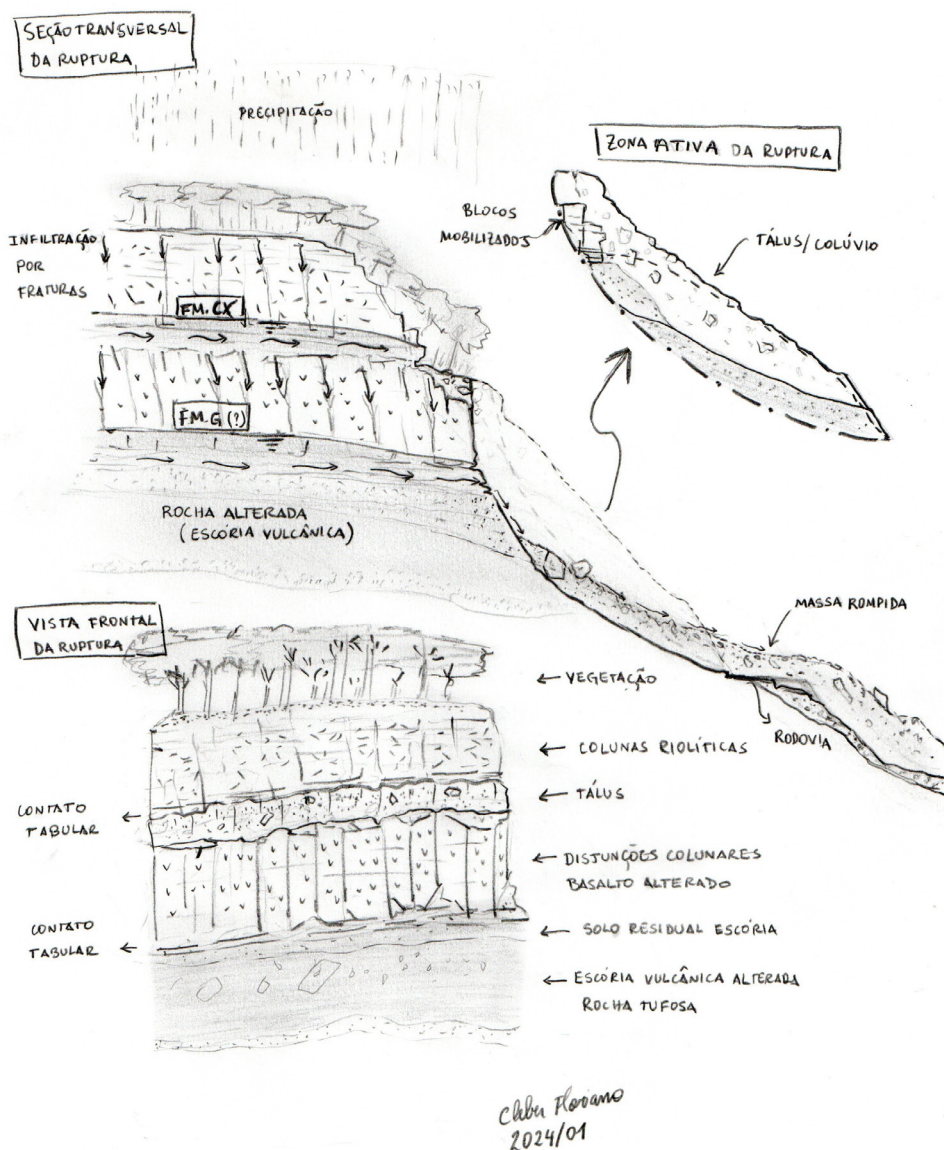 SEÇÃO TRANSVERSAL
DA RUPTURA
PRECIPITAÇÃO
ZONA ATIVA DA RUPTURA
BLOCOS
MOBILIZADOS
TÁLUS/COLÚVIO
INFILTRAÇÃO
POR
FRATURAS
FM.CX
FM.G (?)
ROCHA ALTERADA
(ESCÓRIA VULCÂNICA)
MASSA ROMPIDA
RODOVIA
VISTA FRONTAL
DA RUPTURA
← VEGETAÇÃO
← COLUNAS RIOLÍTICAS
← TÁLUS
CONTATO
TABULAR ←
← DISJUNÇÕES COLUNARES
BASALTO ALTERADO
CONTATO
TABULAR ←
← SOLO RESIDUAL ESCÓRIA
← ESCÓRIA VULCÂNICA ALTERADA
ROCHA TUFOSA
Cleber Floriano
2024/01